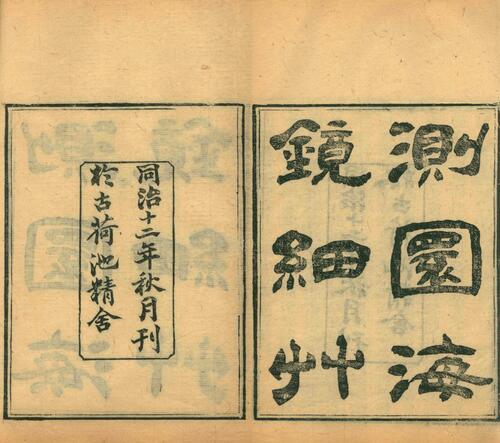 測圓海
鏡細艸
同治十二年秋月刊
於古荷池精舍